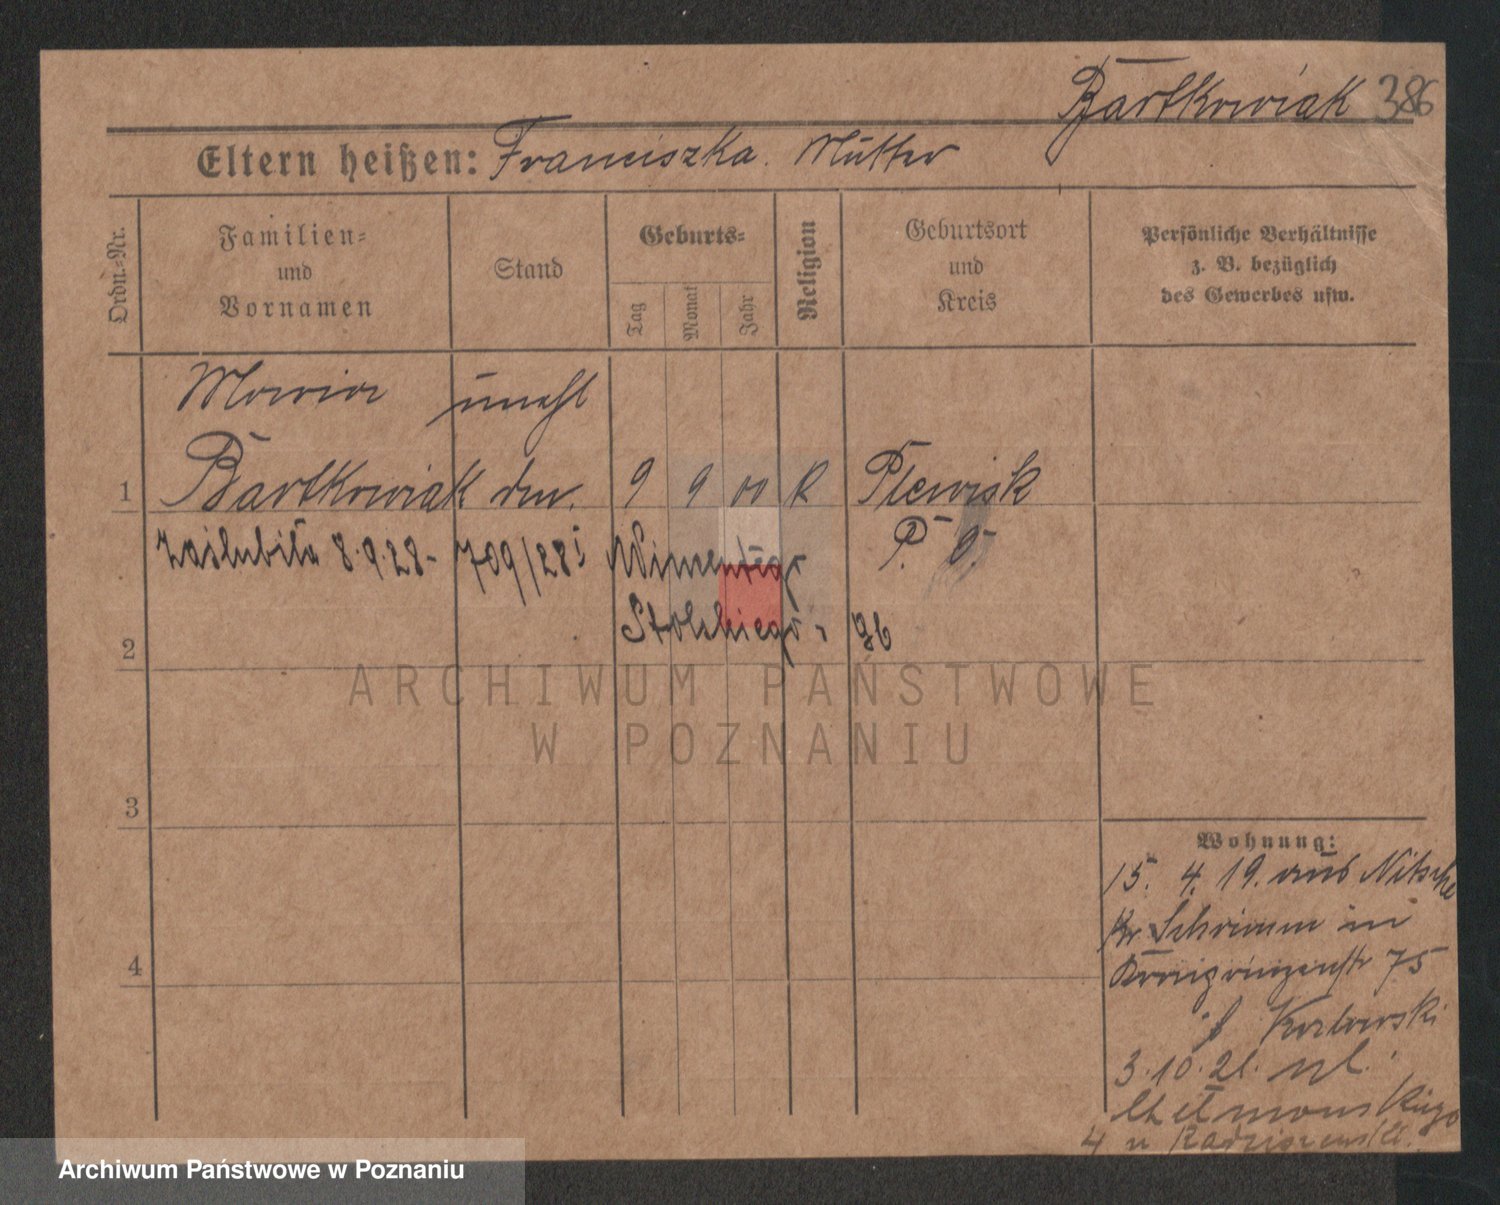 Bartkowiak 386
Eltern heißen: Franciszka Mutter
Ordn.-Nr.
Familien-
und
Vornamen
Stand
Geburts-
Tag
Monat
Jahr
Religion
Geburtsort
und
Kreis
Persönliche Verhältnisse
z. B. bezüglich
des Gewerbes usw.
Maria unehl
1 Bartkowiak 9 9 00 R Plewisk
P. O.
zaślubiła 8.9.28 - 709/28
2 Stolskiego -
ARCHIWUM PAŃSTWOWE
W POZNANIU
3
4
Wohnung:
15. 4. 19. aus Nitsche
Kr Schrimm in
75
Kozlowski
3.10.21. ul.
Chełmońskiego
4 u
Archiwum Państwowe w Poznaniu